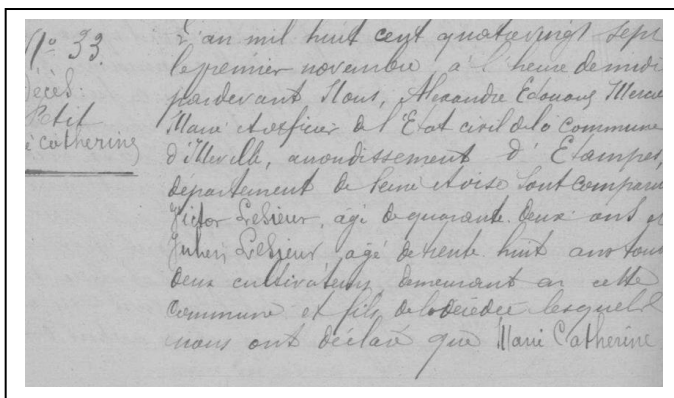 N° 33.
Décès:
Petit
Catherine
L'an mil huit cent quatre vingt sept
le premier novembre à l'heure de midi
pardevant Nous, Alexandre Edouard Mercier
Maire et officier de l'Etat civil de la Commune
d'Merville, arrondissement d'Etampes,
département de Seine et oise sont comparus
Victor Lesieur, agé de quarante deux ans et
Julien Lesieur agé de trente huit ans tous
deux cultivateurs demeurant en cette
Commune et fils de la décédée lesquels
nous ont déclaré que Marie Catherine